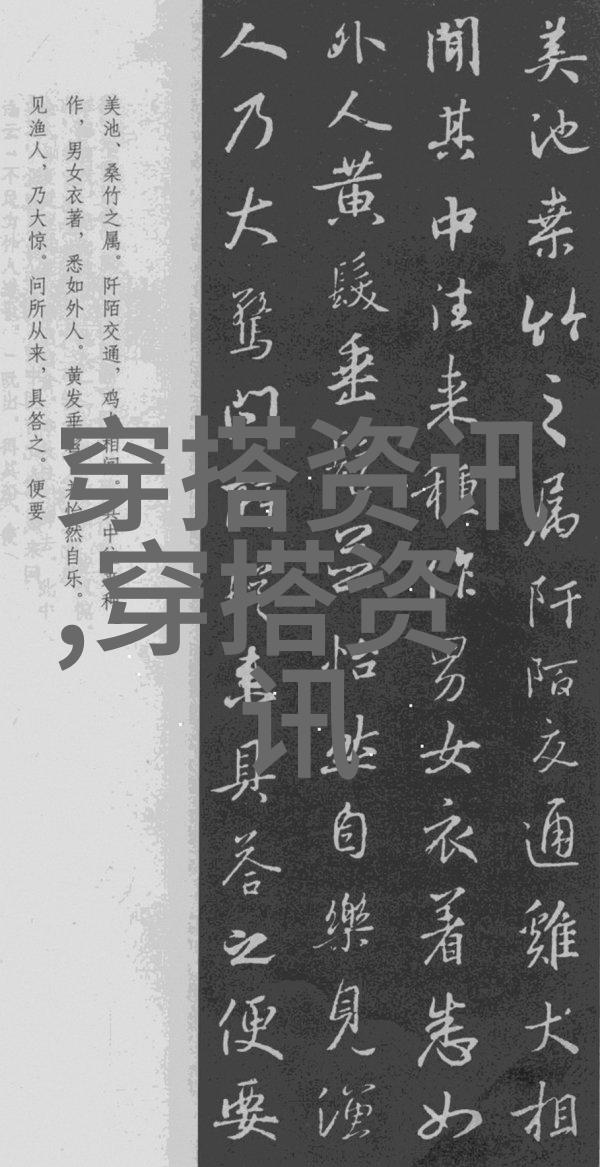 美池桒竹之属阡陌交通雞犬相
聞其中往来種作男女衣着悉如
外人黄髮垂髫並怡然自樂見漁
人乃大驚問所従来具答之便要
美池、桑竹之属。阡陌交通，鸡犬相闻。其中往来种
作，男女衣著，悉如外人。黄发垂髫，并怡然自乐。
见渔人，乃大惊。问所从来，具答之。便要
穿搭资讯
,穿搭资
讯